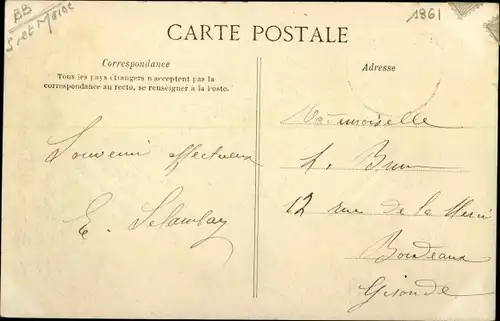 BB
S et Marne
1861
CARTE POSTALE
Correspondance
Tous les pays étrangers n'acceptent pas la
correspondance au recto, se renseigner à la Poste.
Adresse
Souvenir affectueux
E.
Mademoiselle
L. Brun
12 rue de la Merci
Bordeaux
Gironde